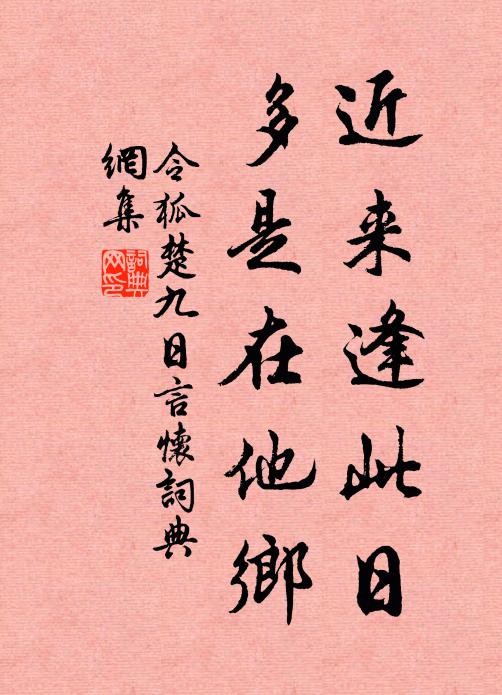 近来逢此日
多是在他鄉
令狐楚九日言懷詞典
網集
詞典網印